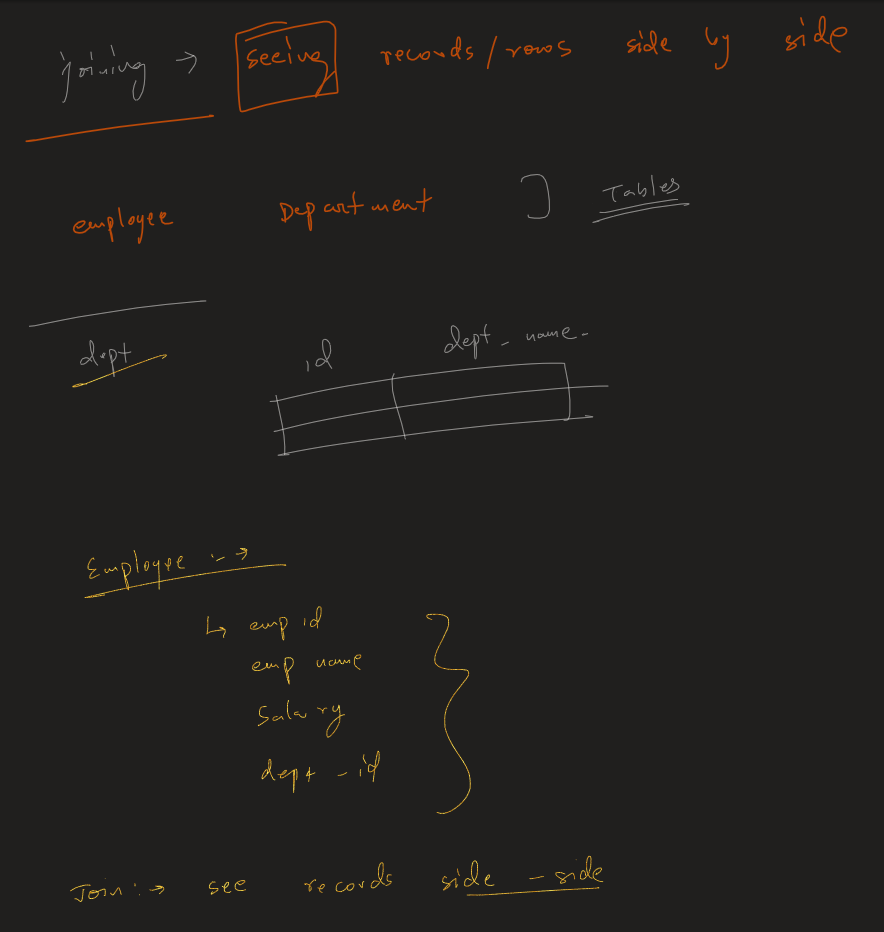 joining → seeing records/rows side by side
employee Department ] Tables
dept id dept_name
Employee :- →
↳ emp id
emp name
Salary
dept_id
Join :→ see records side - side